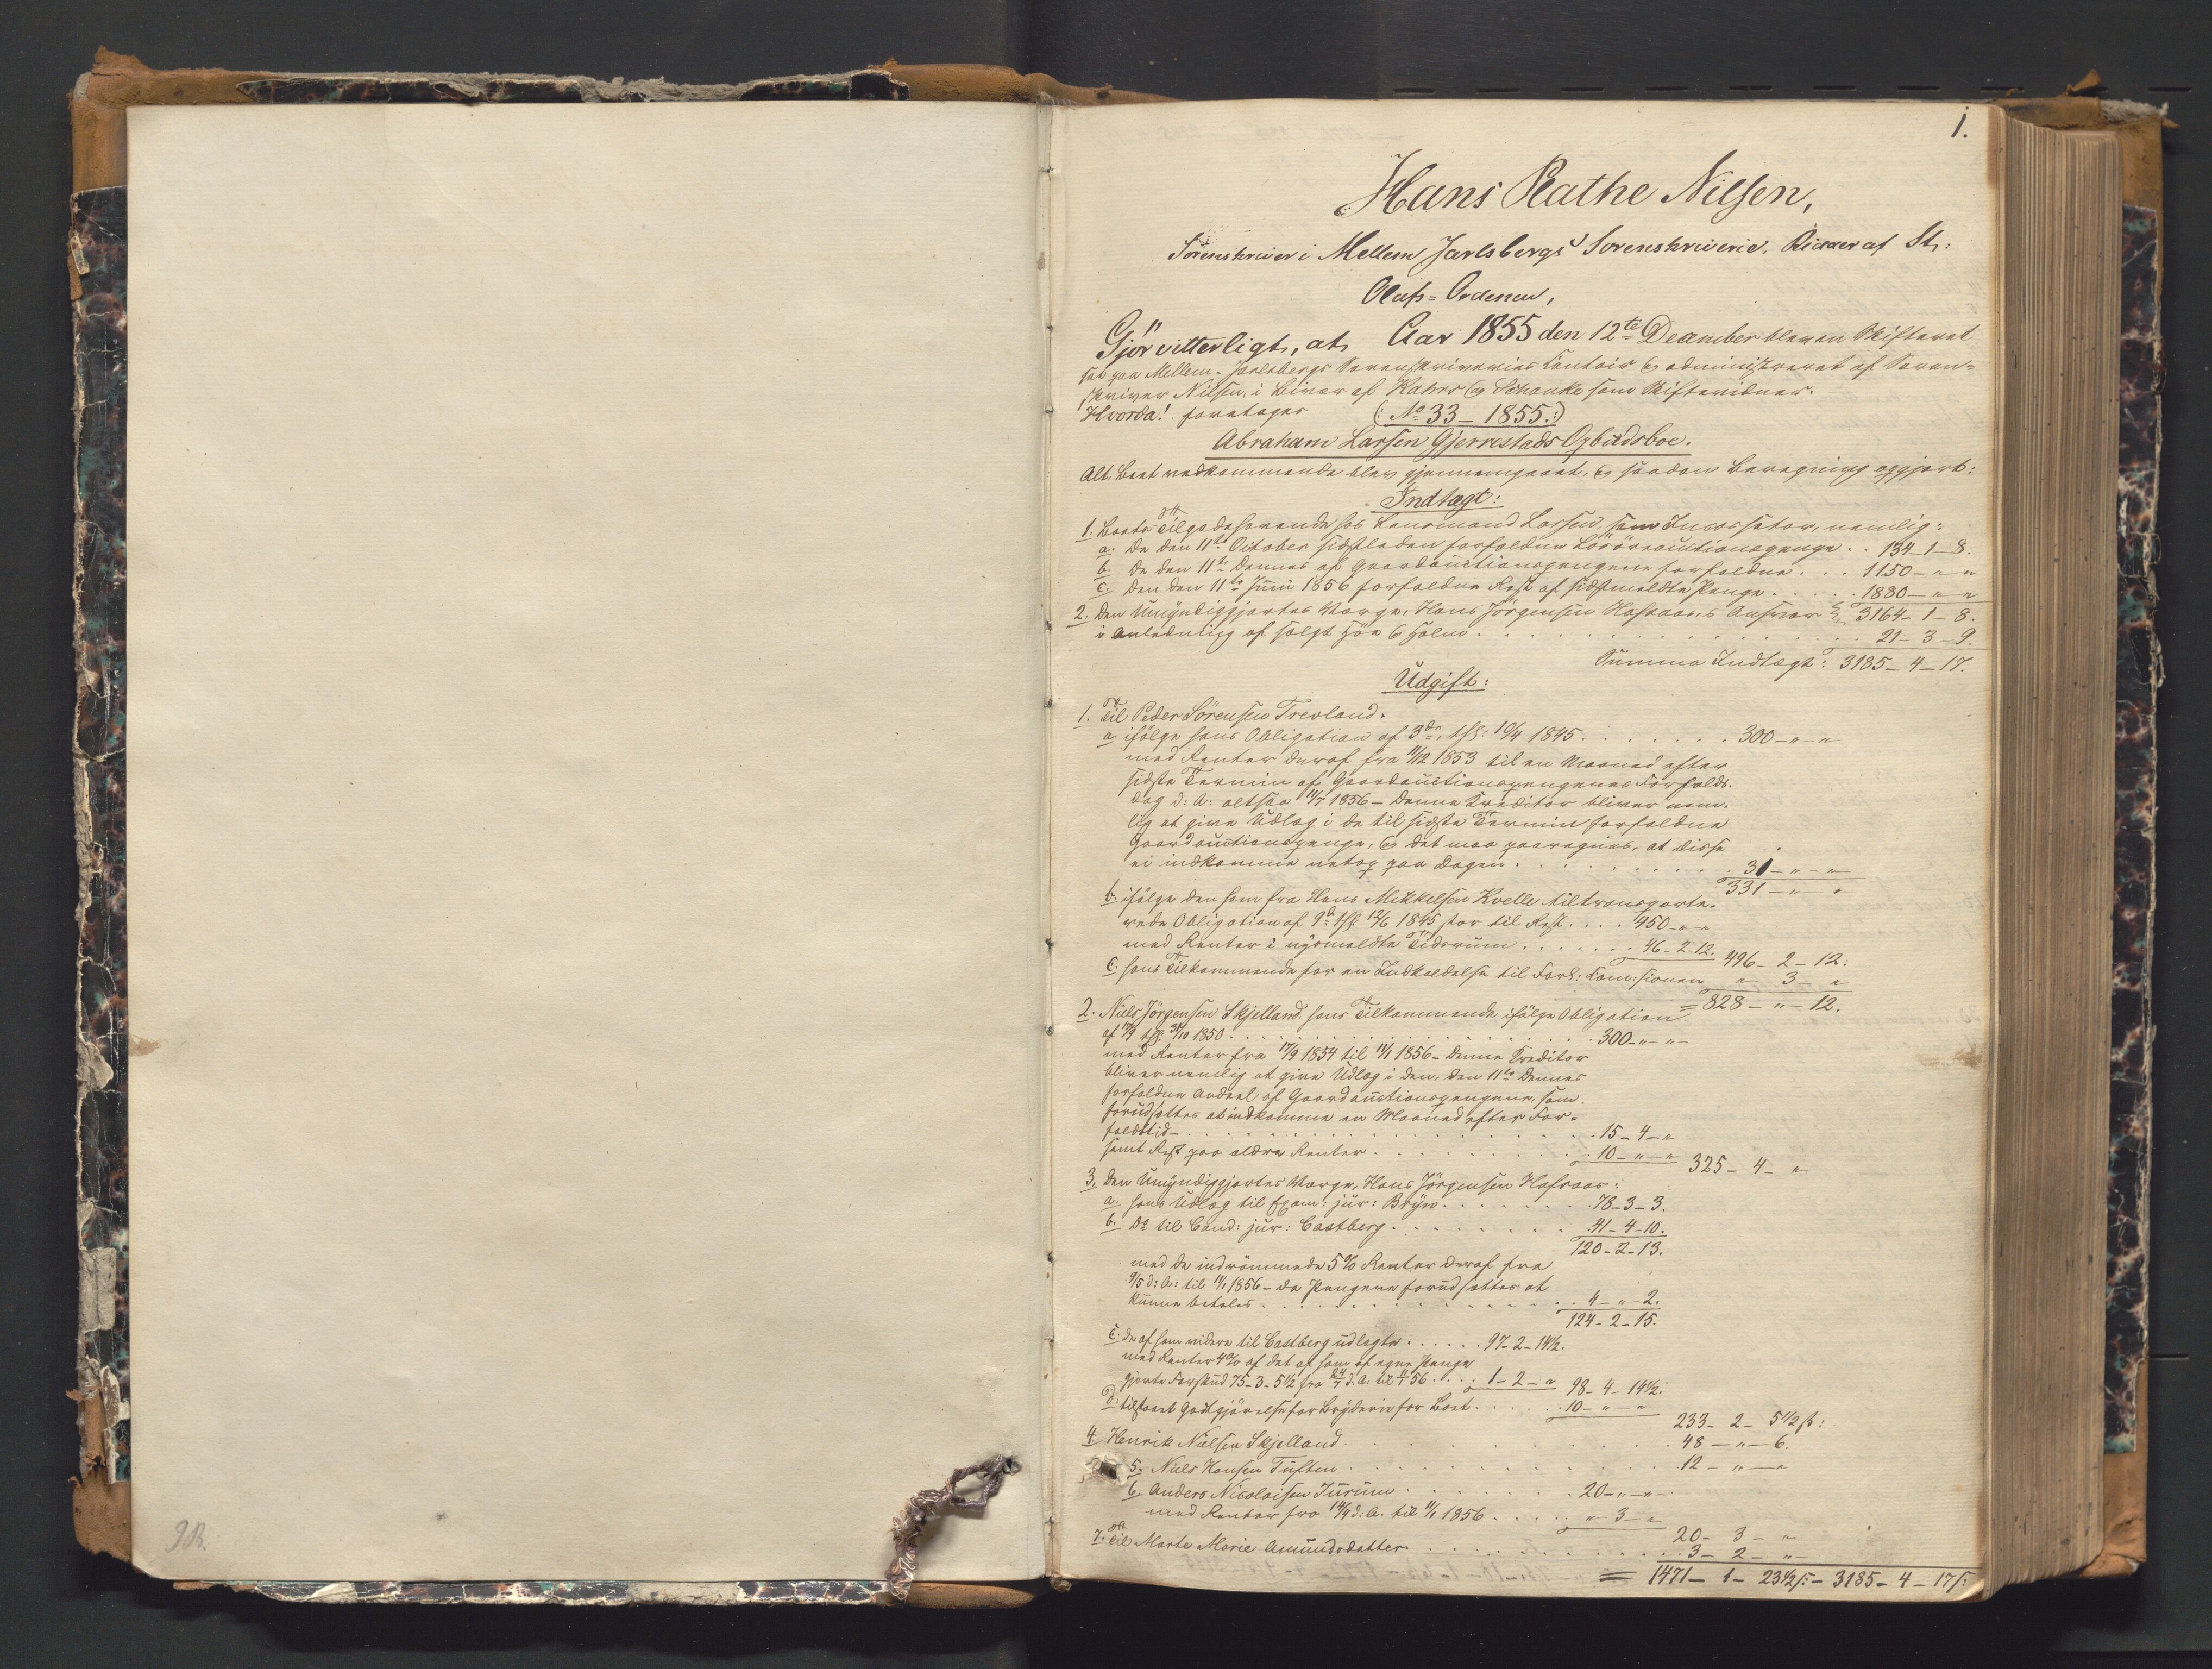 1.
Hans Rathe Nilsen,
Sorenskriver i Mellem Jarlsbergs Sorenskriverie, Ridder af St:
Olafs=Ordenen,
Gjör vitterligt, at Aar 1855 den 12te December blev en Skifteret
sat paa Mellem-Jarlsbergs Sorenskriveries Contoir & administreret af Soren-
skriver Nilsen, i Biver af Kahrs & Schanke som Skiftevidner.
Hvorda! foretages (: No 33 – 1855.:)
Abraham Larsen Gjerrestads Opbudsboe.
Alt, Boet vedkommende blev gjennemgaaet, & saadan Beregning opgjort:
Indtægt:
1. Boets Tilgodehavende hos Lensmand Larsen, som Incassator, nemlig:
a. De den 11te October sidstleden forfaldne Lösöreauctionspenge . . 134-1-8.
b. De den 11te dennes af Gaardauctionspengene forfaldne . . . 1150-"-"
c. Den den 11te Juni 1856 forfaldne Rest af sidstmeldte Penge . . . . 1880-"-"
3164-1-8.
2. Den Umyndiggjortes Værge, Hans Jörgensen Hafsaas's Ansvar
i Anledning af solgt Höe & Halm . . . . 21-3-9.
Summa Indtægt: 3185-4-17.
Udgift:
1. Til Peder Sörensen Trevland.
a. ifölge hans Obligation af 3die, thl: 10/4 1845 . . . . 300-"-"
med Renter deraf fra 11/12 1853 til en Maaned efter
sidste Termin af Gaardauctionspengenes Forfalds-
dag d: A: altsaa 11/7 1856 – Denne Kreditor bliver nem-
lig at give Udlæg i de til sidste Termin forfaldne
Gaardauctionspenge, & det maa paaregnes, at disse
ei indkomme netop paa Dagen . . . . 31-"-"
331-"-"
b. ifölge den ham fra Hans Mikkelsen Kvelle tiltranspor te-
rede Obligation af 9de thl. 12/6 1845 stor til Rest . . . 450-"-"
med Renter i nysmeldte Tidsrum . . . . 46-2-12. 496-2-12.
c. hans Tilkommende for en Indkaldelse til Forl: Com:sionen "-3-"
= 828-"-12.
2. Niels Jörgensen Skjelland, hans Tilkommende ifölge Obligation
af 17/9 thl. 31/10 1850 . . . . 300-"-"
med Renter fra 17/9 1854 til 11/1 1856 – Denne Kreditor
bliver nemlig at give Udlæg i den, den 11te dennes
forfaldne Andeel af Gaardauctionspengene, som
forudsættes at indkomme en Maaned efter For-
faldstid – . . . . 15-4-"
samt Rest paa ældre Renter . . . . 10-"-" 325-4-"
3. Den Umyndiggjortes Værge, Hans Jörgensen Hafsaas:
a. hans Udlæg til Exam: jur: Bryn . . . . 78-3-3.
b. Do til Cand: jur: Castberg . . . . 41-4-10.
120-2-13.
med de indrömmede 5% Renter deraf fra
9/5 d: A: til 11/1 1856 – da Pengene forudsættes at
kunne betales . . . . 4-"-2.
124-2-15.
c. de af ham videre til Castberg udlagte . . . . 97-2-14½.
med Renter 4% af det af ham af egne Penge
gjorte Forskud 75-3-5½ fra 24/7 d: A: til 11/1 56 . . . 1-2-" 98-4-14½.
d. tilstaaet Godtgjörelse for Bryderie for Boet . . . . 10-"-"
233-2-5½ ß:
4. Henrik Nielsen Skjelland . . . . 48-"-6.
5. Niels Hansen Tuften . . . . 12-"-"
6. Anders Nicolaisen Furum . . . . 20-"-"
med Renter fra 14/9 d: A. til 11/1 1856 . . . . "-3-"
20-3-"
7. Til Marte Marie Amundsdatter . . . . 3-2-"
= 1471-1-23½ ß: – 3185-4-17 ß:
9B.